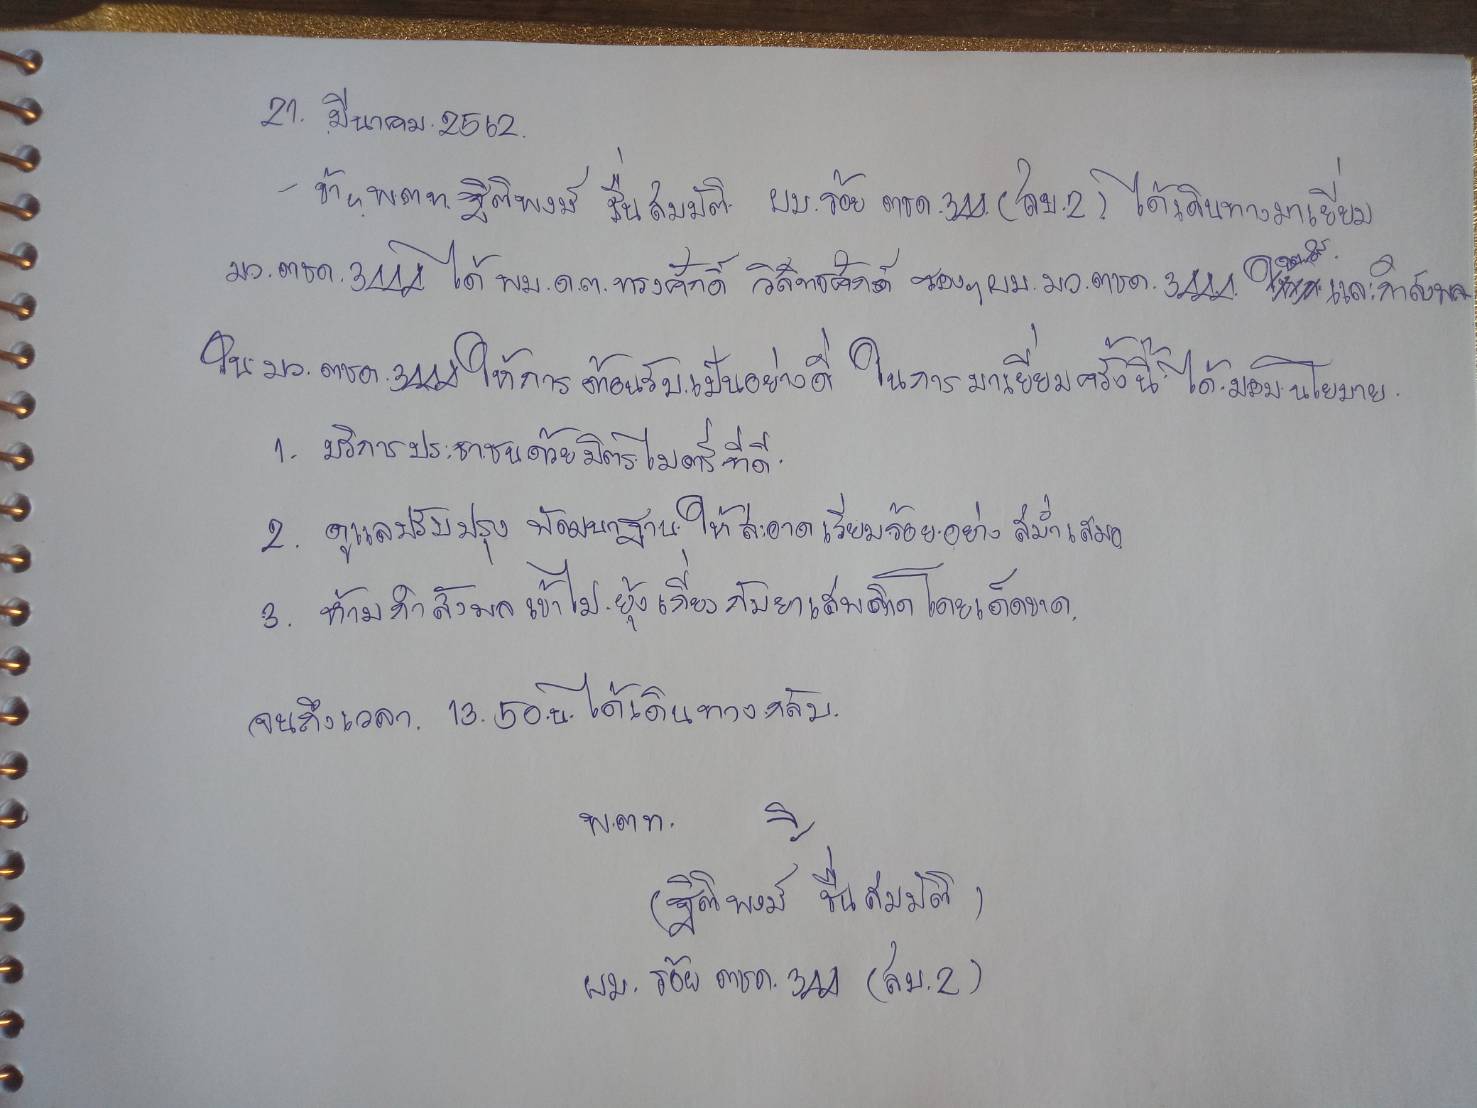 21. มีนาคม.2562.
- ข้าฯ พ.ต.ท.ฐิติพงษ์ ชื่นสมบัติ ผบ.ร้อย ตชด.344 (สบ.2) ได้เดินทางมาเยี่ยม
มว.ตชด.3444 ได้ พบ.ด.ต.ทรงศักดิ์ รอง ผบ.มว.ตชด.3444 และกำลังพล
ใน มว.ตชด.3444 ให้การต้อนรับเป็นอย่างดี ในการมาเยี่ยมครั้งนี้ ได้มอบนโยบาย.
1. บริการประชาชนด้วยมิตรไมตรีที่ดี.
2. ดูแลปรับปรุง พัฒนาฐานให้สะอาดเรียบร้อยอย่าง สม่ำเสมอ
3. ห้ามกำลังพลเข้าไปยุ้งเกี่ยวกับยาเสพติดโดยเด็ดขาด.
จนถึงเวลา. 13.50.น. ได้เดินทางกลับ.
พ.ต.ท.
(ฐิติพงษ์ ชื่นสมบัติ)
ผบ. ร้อย ตชด.344 (สบ.2)